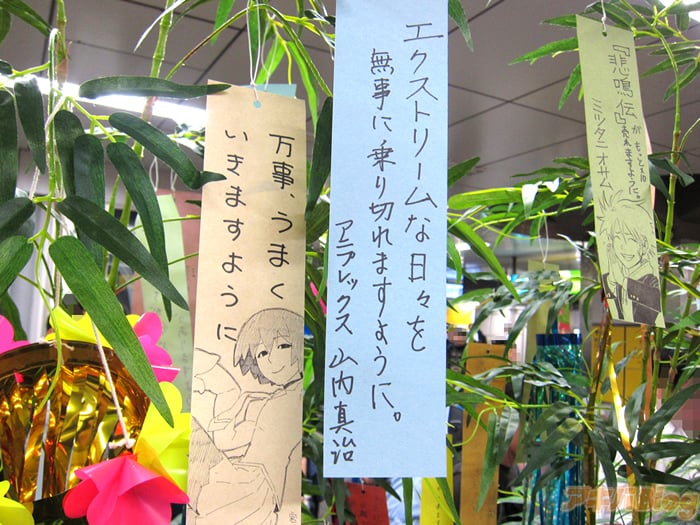 万事、うまく
いきますように
エクストリームな日々を
無事に乗り切れますように。
アニプレックス 山内真治
『悲鳴伝』が
売れますように。
ミツタニオサム
アキバBlog